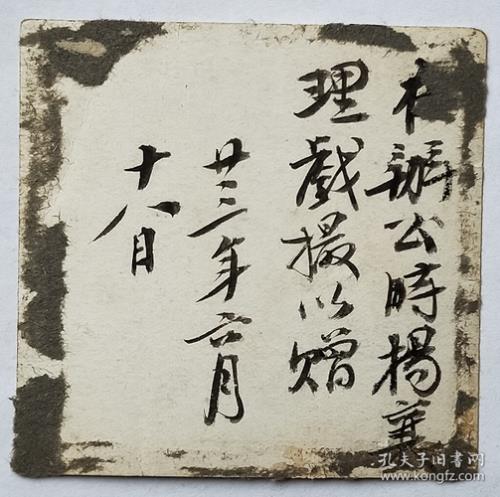 才辦公時楊兼
理戲撮以贈
廿三年六月
十八日
孔夫子旧书网
www.kongfz.com